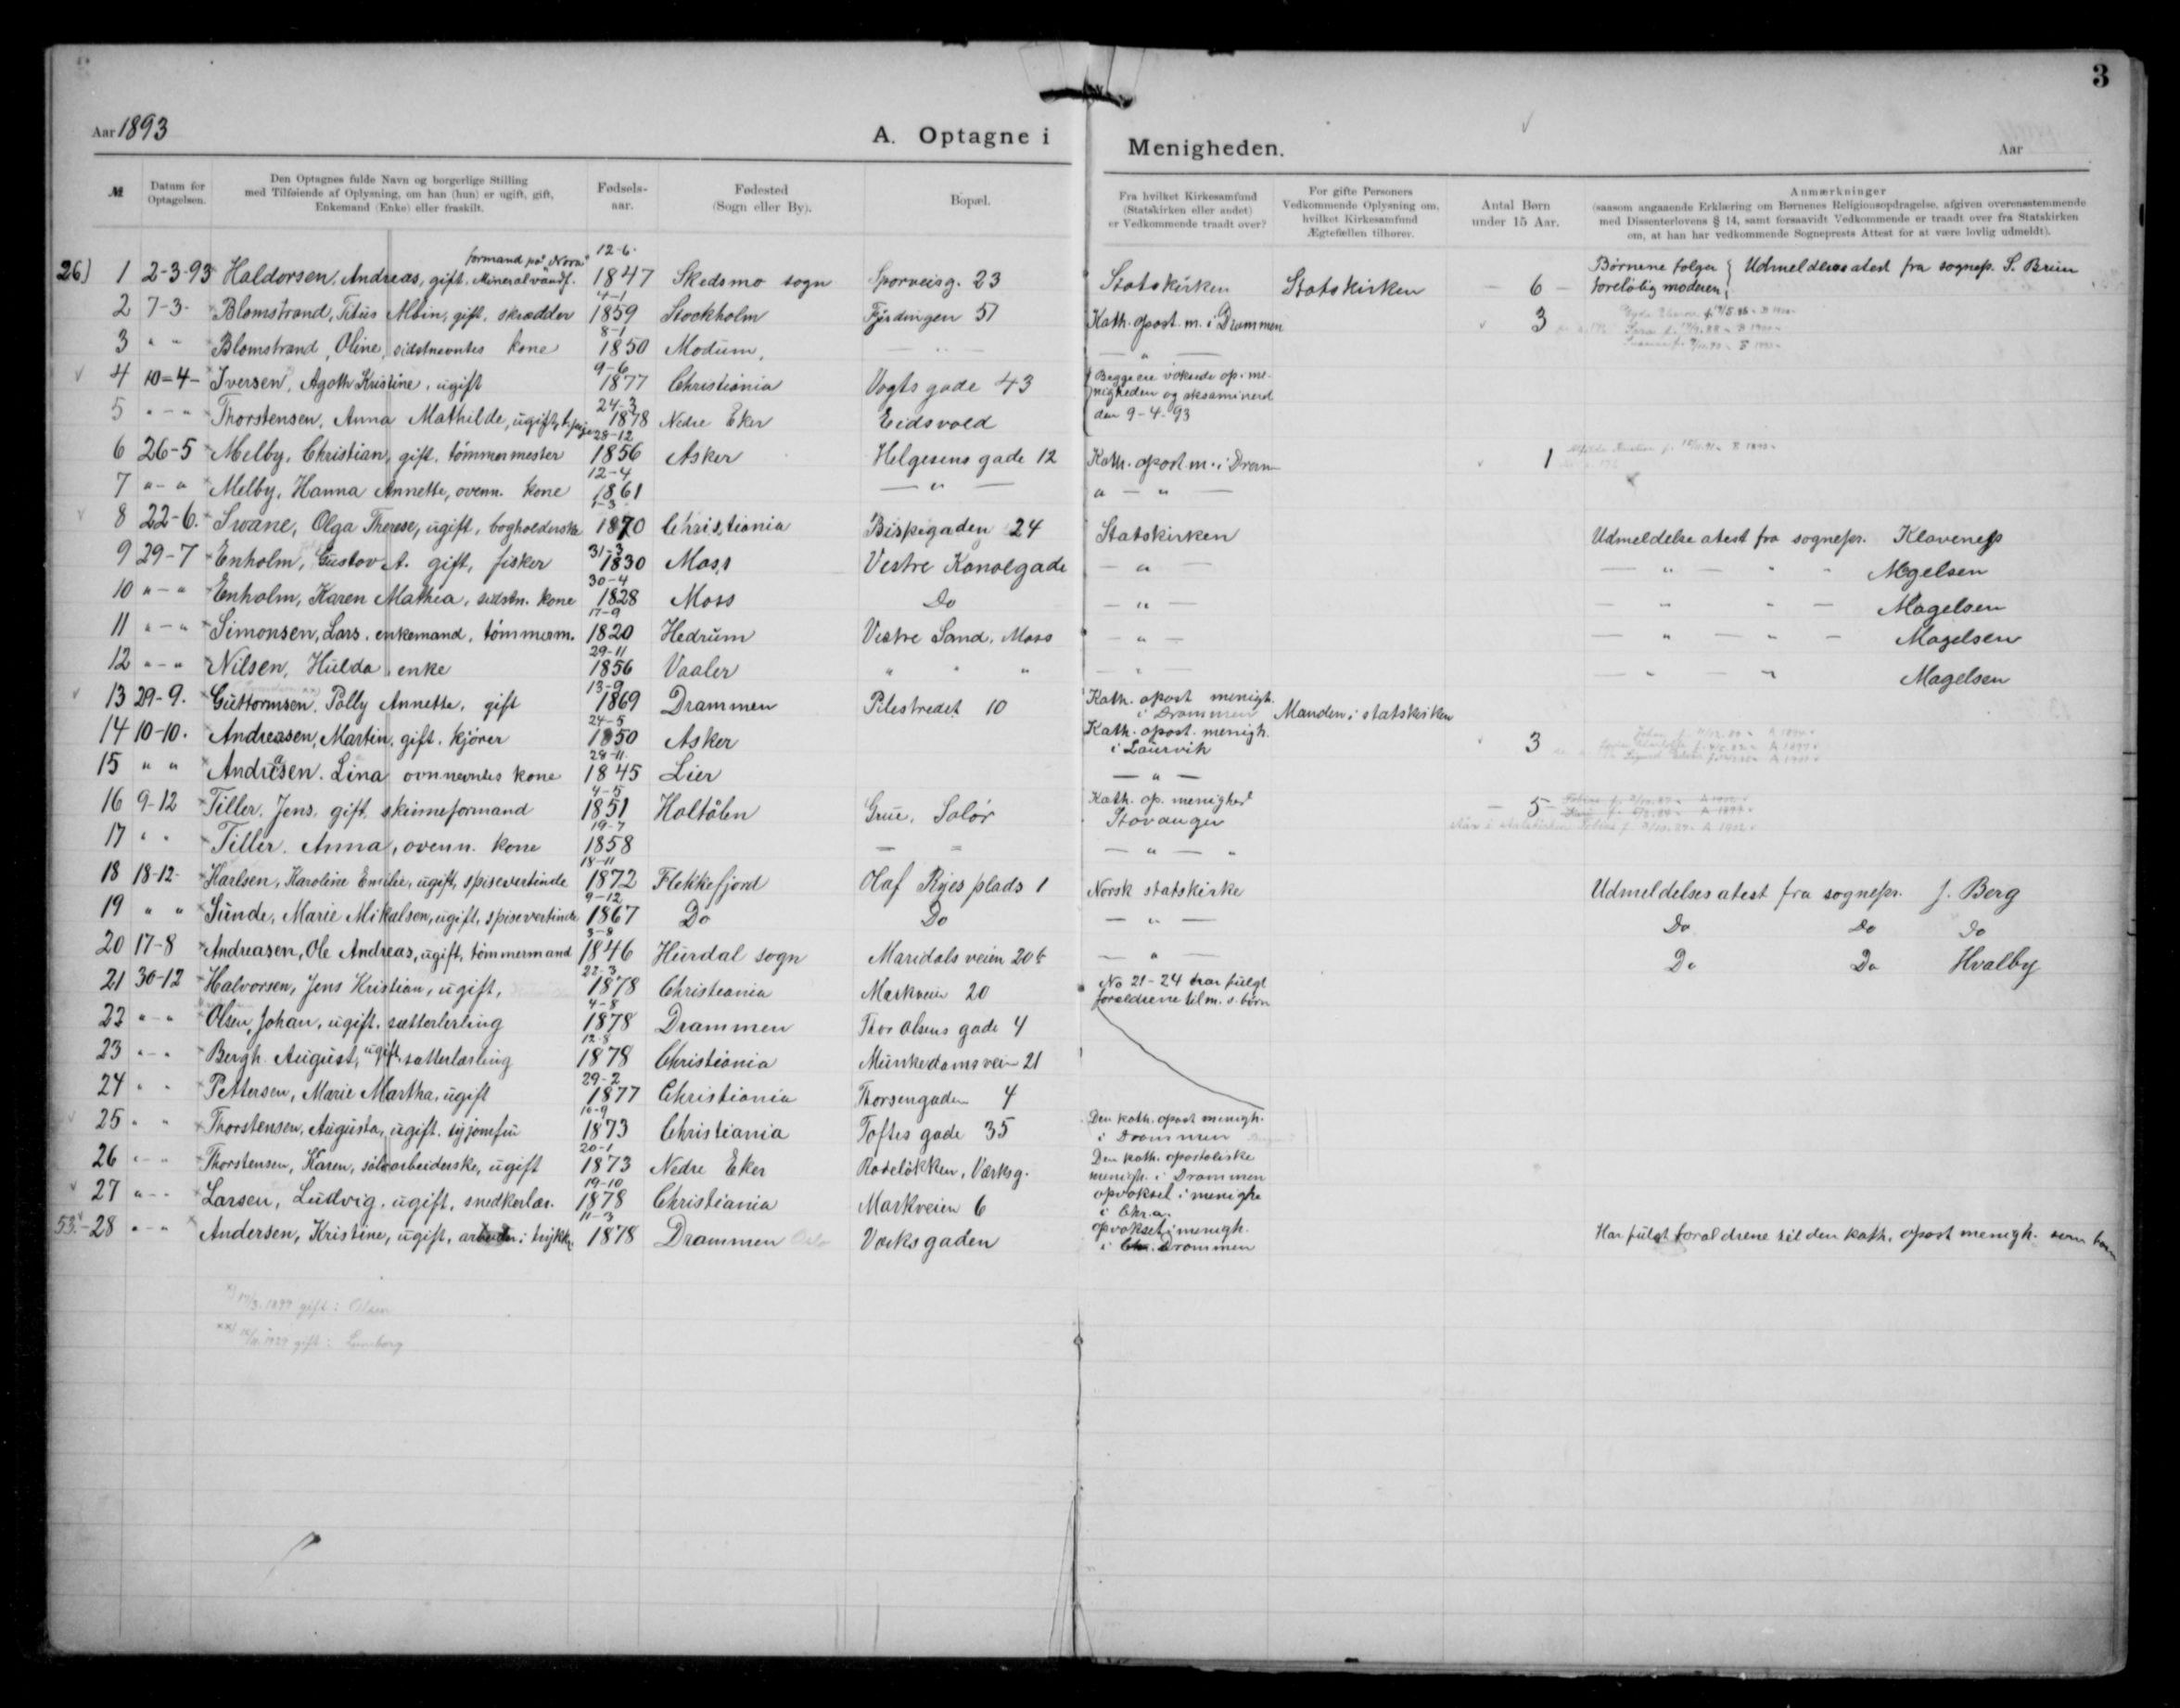 3
Aar 1893
A. Optagne i Menigheden.
Aar
№
Datum for Optagelsen.
Den Optagnes fulde Navn og borgerlige Stilling med Tilføiende af Oplysning, om han (hun) er ugift, gift, Enkemand (Enke) eller fraskilt.
Fødsels-aar.
Fødested (Sogn eller By).
Bopæl.
Fra hvilket Kirkesamfund (Statskirken eller andet) er Vedkommende traadt over?
For gifte Personers Vedkommende Oplysning om, hvilket Kirkesamfund Ægtefællen tilhører.
Antal Børn under 15 Aar.
Anmærkninger (saasom angaaende Erklæring om Børnenes Religionsopdragelse, afgiven overensstemmende med Dissenterlovens § 14, samt forsaavidt Vedkommende er traadt over fra Statskirken om, at han har vedkommende Sogneprests Attest for at være lovlig udmeldt).
formand på "Nora" 12-6-
26) 1 2-3-93 Haldorsen, Andreas, gift. Mineralvandf. 1847 Skedsmo sogn Sporveisg. 23 Statskirken Statskirken – 6 – Børnene følger foreløbig moderen, Udmeldelsesatest fra sognep. S. Brun
4-1
2 7-3- Blomstrand, Titus Albin, gift, skrædder 1859 Stockholm Fjerdingen 51 Kath. apost. m. i Drammen 3
8-1
3 " " Blomstrand, Oline, sidstnevntes kone 1850 Modum, — " — — " —
9-6
4 10-4- Iversen, Agoth Kristine, ugift 1877 Christiania Vogts gade 43 Begge ere voksede op i me-
nigheden og eksaminerd
24-3
5 " – " Thorstensen, Anna Mathilde, ugift, 1878 Nedre Eker Eidsvold den 9-4-93
28-12
6 26-5 Melby, Christian, gift, tømmermester 1856 Asker Helgesens gade 12 Kath. apost. m. i Dram– 1
12-4
7 " – " Melby, Hanna Annette, ovenn. kone 1861 — " — " — " —
1-3
8 22-6. Swane, Olga Therese, ugift, bogholderske 1870 Christiania Bispegaden 24 Statskirken Udmeldelse atest fra sognepr. Klaveness
31-3
9 29-7 Enholm, Gustav A. gift, fisker 1830 Moss Vestre Kanalgade — " — — " — " - Magelsen
30-4
10 " – " Enholm, Karen Mathea, sidstn. kone 1828 Moss Do — " — — " " — Magelsen
17-9
11 " – " Simonsen, Lars, enkemand, tømmerm. 1820 Hedrum Vestre Sand, Moss — " — — " — " — Magelsen
29-11
12 " – " Nilsen, Hulda, enke 1856 Vaaler " " " — " — — " — " Magelsen
13-9
13 29-9. Guttormsen, Polly Annette, gift 1869 Drammen Pilestredet 10 Kath. apost menigh. i Drammen Manden i statskirken
24-5
14 10-10. Andreasen, Martin, gift, kjører 1850 Asker Kath. apost. menigh. i Laurvik 3
28-11
15 " " Andreasen, Lina ovnnevntes kone 1845 Lier — " —
4-5
16 9-12 Tiller, Jens, gift, skinneformand 1851 Holtålen Grue, Solør Kath. ap. menighed Stavanger – 5 –
19-7
17 " " Tiller, Anna, ovenn. kone 1858 — " — — " — "
18-11
18 18-12- Karlsen, Karoline Emilie, ugift, spisevertinde 1872 Flekkefjord Olaf Ryes plads 1 Norsk statskirke Udmeldelses atest fra sognepr. J. Berg
9-12
19 " " Sunde, Marie Mikalsen, ugift, spisevertinde 1867 Do Do — " — Do Do Do
3-8
20 17-8 Andreasen, Ole Andreas, ugift, tømmermand 1846 Hurdal sogn Maridalsveien 20b — " — Do Do Hvalby
22-3
21 30-12 Halvorsen, Jens Kristian, ugift, 1878 Christiania Markveien 20 No 21-24 har fulgt
forældrene til m. s. børn
4-8
22 " – " Olsen, Johan, ugift, sætterlerling 1878 Drammen Thor Olsens gade 4
12-8
23 " – " Bergh August, ugift, sætterlærling 1878 Christiania Munkedamsvein 21
29-2
24 " " Pettersen, Marie Martha, ugift 1877 Christiania Thorsengaden 4
10-9
25 " " Thorstensen, Augusta, ugift, syjomfru 1873 Christiania Toftes gade 35 Den kath. apost menigh. i Drammen
20-1
26 " – " Thorstensen, Karen, sølvarbeiderske, ugift 1873 Nedre Eker Rodeløkken, Værksg. Den kath. apostoliske menigh. i Drammen
19-10
27 " – " Larsen, Ludvig, ugift, snedkerlær. 1878 Christiania Markveien 6 opvokset i menighe i Chr.a.
11-3
53.- 28 " – " Andersen, Kristine, ugift, 1878 Drammen Værksgaden opvokset i menigh. i Drammen Har fulgt forældrene til den kath. apost menigh. som barn